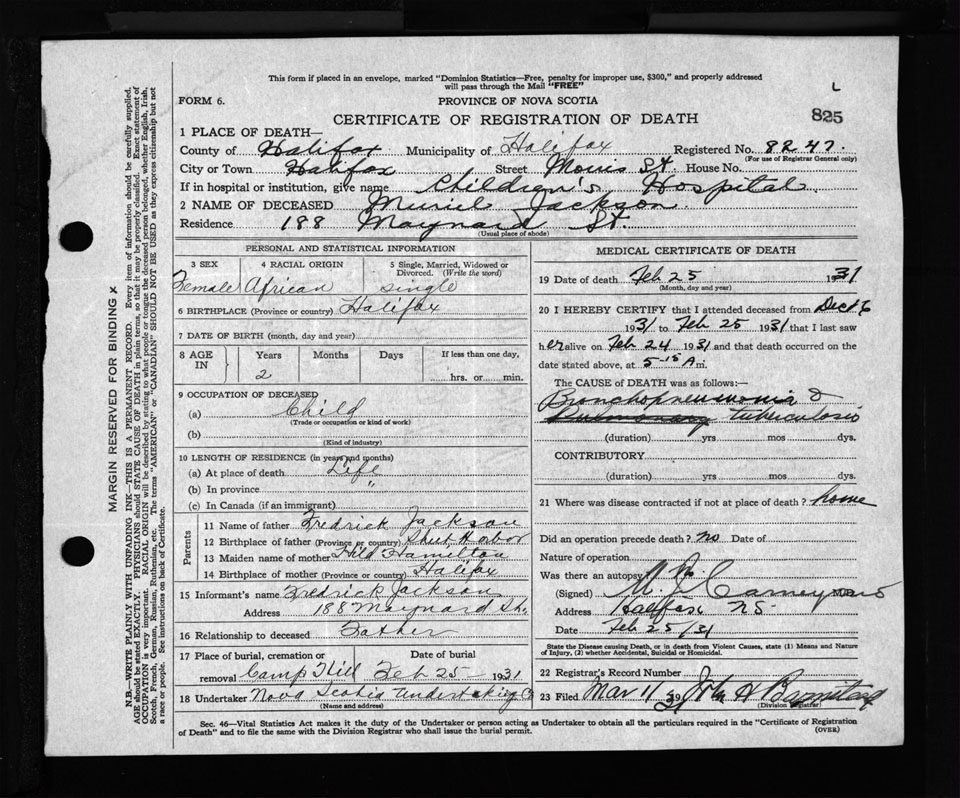 This form if placed in an envelope, marked "Dominion Statistics—Free, penalty for improper use, $300," and properly addressed
will pass through the Mail "FREE"
L
FORM 6.
PROVINCE OF NOVA SCOTIA
825
CERTIFICATE OF REGISTRATION OF DEATH
1 PLACE OF DEATH—
County of Halifax Municipality of Halifax Registered No. 8247.
(For use of Registrar General only)
City or Town Halifax Street Morris St. House No.
If in hospital or institution, give name Children's Hospital
2 NAME OF DECEASED Muriel Jackson
Residence 188 Maynard St.
(Usual place of abode)
PERSONAL AND STATISTICAL INFORMATION
3 SEX 4 RACIAL ORIGIN 5 Single, Married, Widowed or Divorced. (Write the word)
Female African single
6 BIRTHPLACE (Province or country) Halifax
7 DATE OF BIRTH (month, day and year)
8 AGE IN Years Months Days If less than one day,
2 hrs. or min.
9 OCCUPATION OF DECEASED
(a) Child
(Trade or occupation or kind of work)
(b)
(Kind of industry)
10 LENGTH OF RESIDENCE (in years and months)
(a) At place of death Life
(b) In province "
(c) In Canada (if an immigrant)
Parents
11 Name of father Fredrick Jackson
12 Birthplace of father (Province or country) Sheet Harbor
13 Maiden name of mother Hamilton
14 Birthplace of mother (Province or country) Halifax
15 Informant's name Fredrick Jackson
Address 188 Maynard St.
16 Relationship to deceased Father
17 Place of burial, cremation or removal Date of burial
Camp Hill Feb 25 1931
18 Undertaker Nova Scotia Undertaking Co
(Name and address)
MEDICAL CERTIFICATE OF DEATH
19 Date of death Feb 25 1931
(Month, day and year)
20 I HEREBY CERTIFY that I attended deceased from Dec 16
1931 to Feb 25 1931 that I last saw
her alive on Feb 24 1931 and that death occurred on the
date stated above, at 5-15 A m.
The CAUSE OF DEATH was as follows:—
Bronchopneumonia &
Pulmonary tuberculosis
(duration) yrs mos dys.
CONTRIBUTORY
(duration) yrs mos dys.
21 Where was disease contracted if not at place of death? home
Did an operation precede death? no Date of
Nature of operation
Was there an autopsy
(Signed) M. J. Carney M.D.
Address Halifax NS
Date Feb 25/31
State the Disease causing Death, or in death from Violent Causes, state (1) Means and Nature
of Injury, (2) whether Accidental, Suicidal or Homicidal.
22 Registrar's Record Number
23 Filed Mar 11 1931 John H Barnstead
(Division Registrar)
Sec. 46—Vital Statistics Act makes it the duty of the Undertaker or person acting as Undertaker to obtain all the particulars required in the "Certificate of Registration
of Death" and to file the same with the Division Registrar who shall issue the burial permit.
(OVER)
MARGIN RESERVED FOR BINDING
N.B.—WRITE PLAINLY WITH UNFADING INK—THIS IS A PERMANENT RECORD. Every item of information should be carefully supplied.
AGE should be stated EXACTLY. PHYSICIANS should STATE CAUSE OF DEATH in plain terms, so that it may be properly classified. Exact statement of
OCCUPATION is very important. RACIAL ORIGIN will be described by stating to what people or tongue the deceased person belonged, whether English, Irish,
Scotch, French, German, Russian, Ruthenian, etc. The terms "AMERICAN" or "CANADIAN" SHOULD NOT BE USED as they express citizenship but not
a race or people. See instructions on back of Certificate.